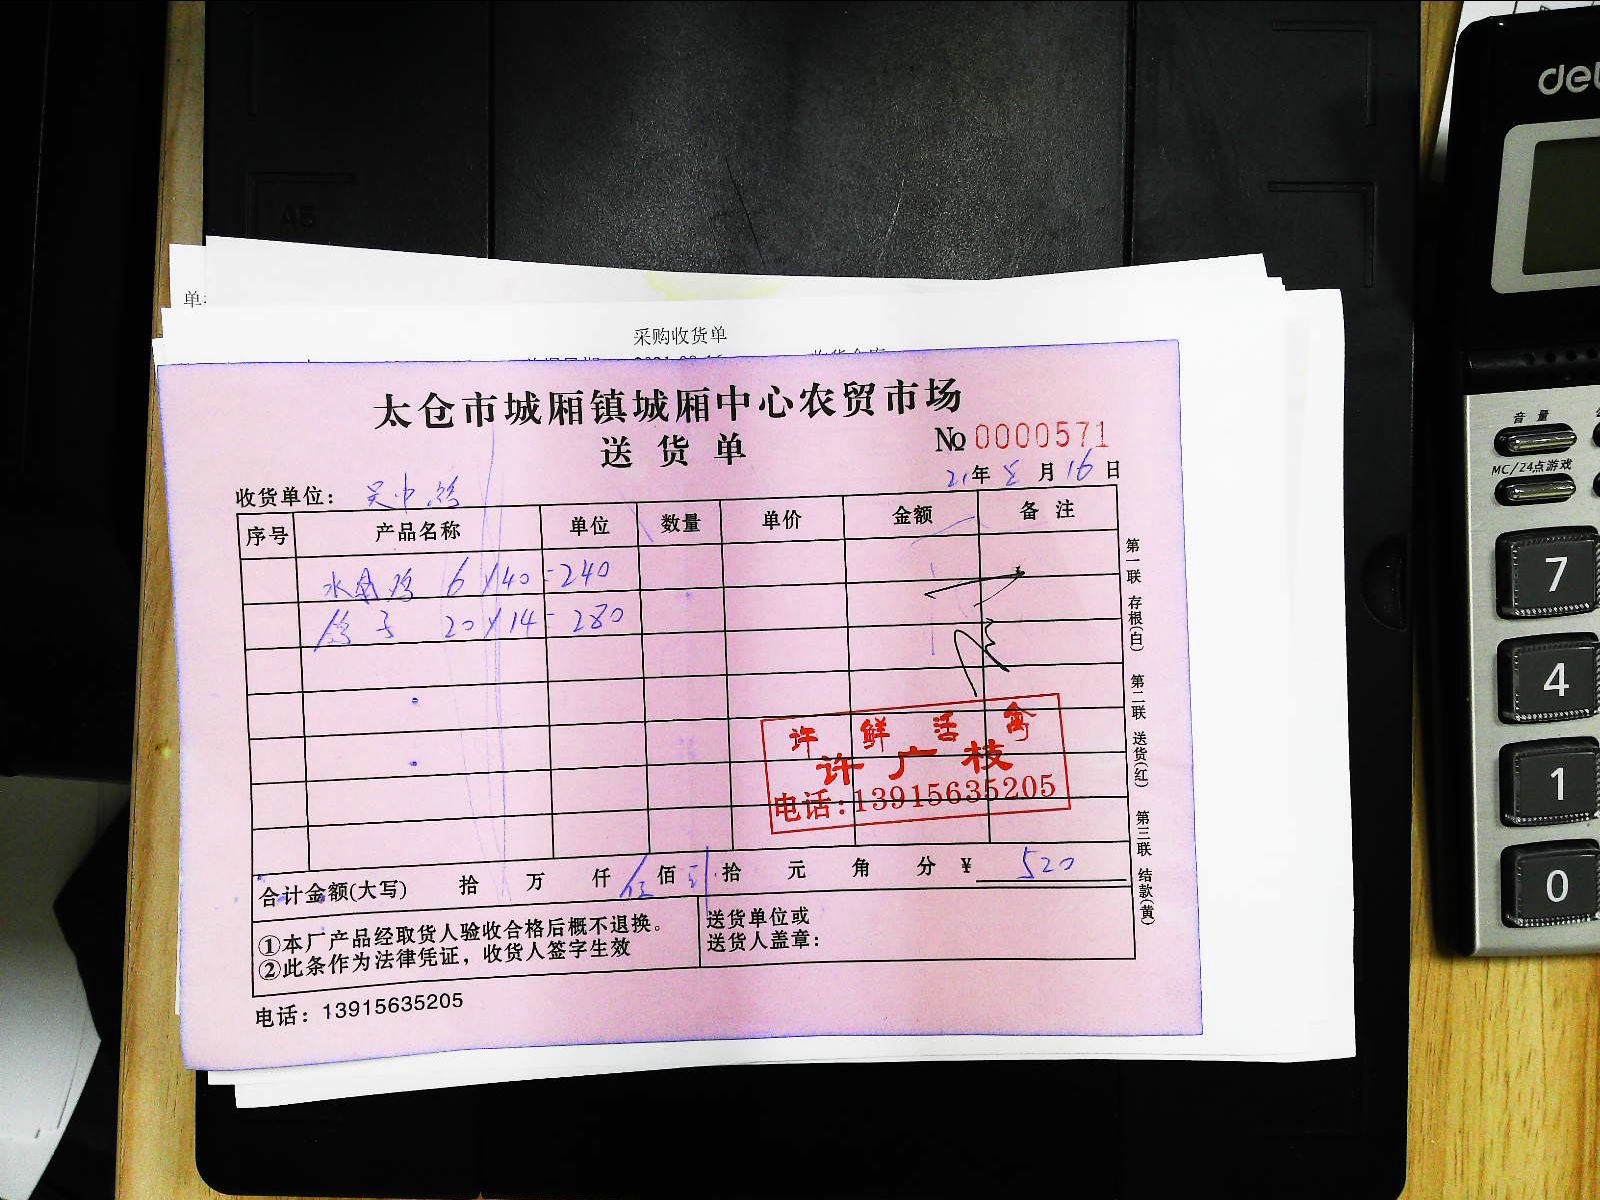 A5
单
采购收货单
太仓市城厢镇城厢中心农贸市场
送货单
No 0000571
21年 8月16日
收货单位：
序号 产品名称 单位 数量 单价 金额 备注
6×40=240
鸽子 20×14=280
许鲜活禽
许广枝
电话:13915635205
合计金额(大写) 拾 万 仟 伍佰 拾 元 角 分 ¥ 520
①本厂产品经取货人验收合格后概不退换。
②此条作为法律凭证，收货人签字生效
送货单位或
送货人盖章：
电话：13915635205
第一联 存根(白) 第二联 送货(红) 第三联 结款(黄)
音量
MC/24点游戏
7
4
1
0